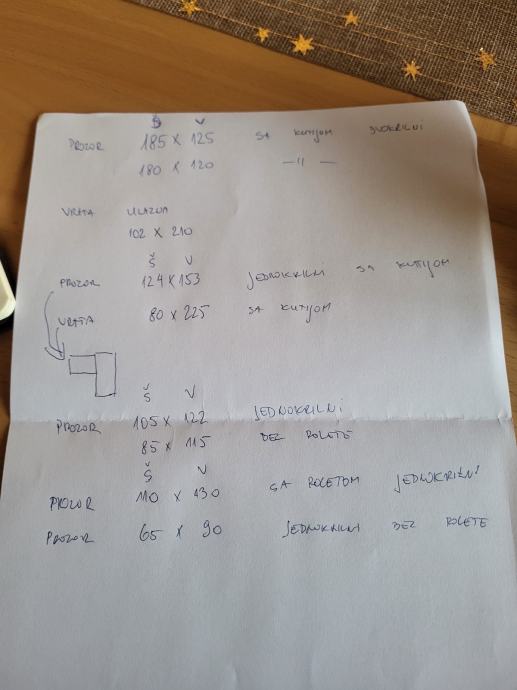 Š V
PROZOR 185 X 125 SA KUTIJOM DVOKRILNI
180 X 120 —11—
VRATA ULAZNA
102 X 210
Š V
PROZOR 124 X 153 JEDNOKRILNI SA KUTIJOM
VRATA 80 X 225 SA KUTIJOM
Š V
PROZOR 105 X 122 JEDNOKRILNI
85 X 115 BEZ ROLETE
Š V
PROZOR 110 X 130 SA ROLETOM JEDNOKRILNI
PROZOR 65 X 90 JEDNOKRILNI BEZ ROLETE